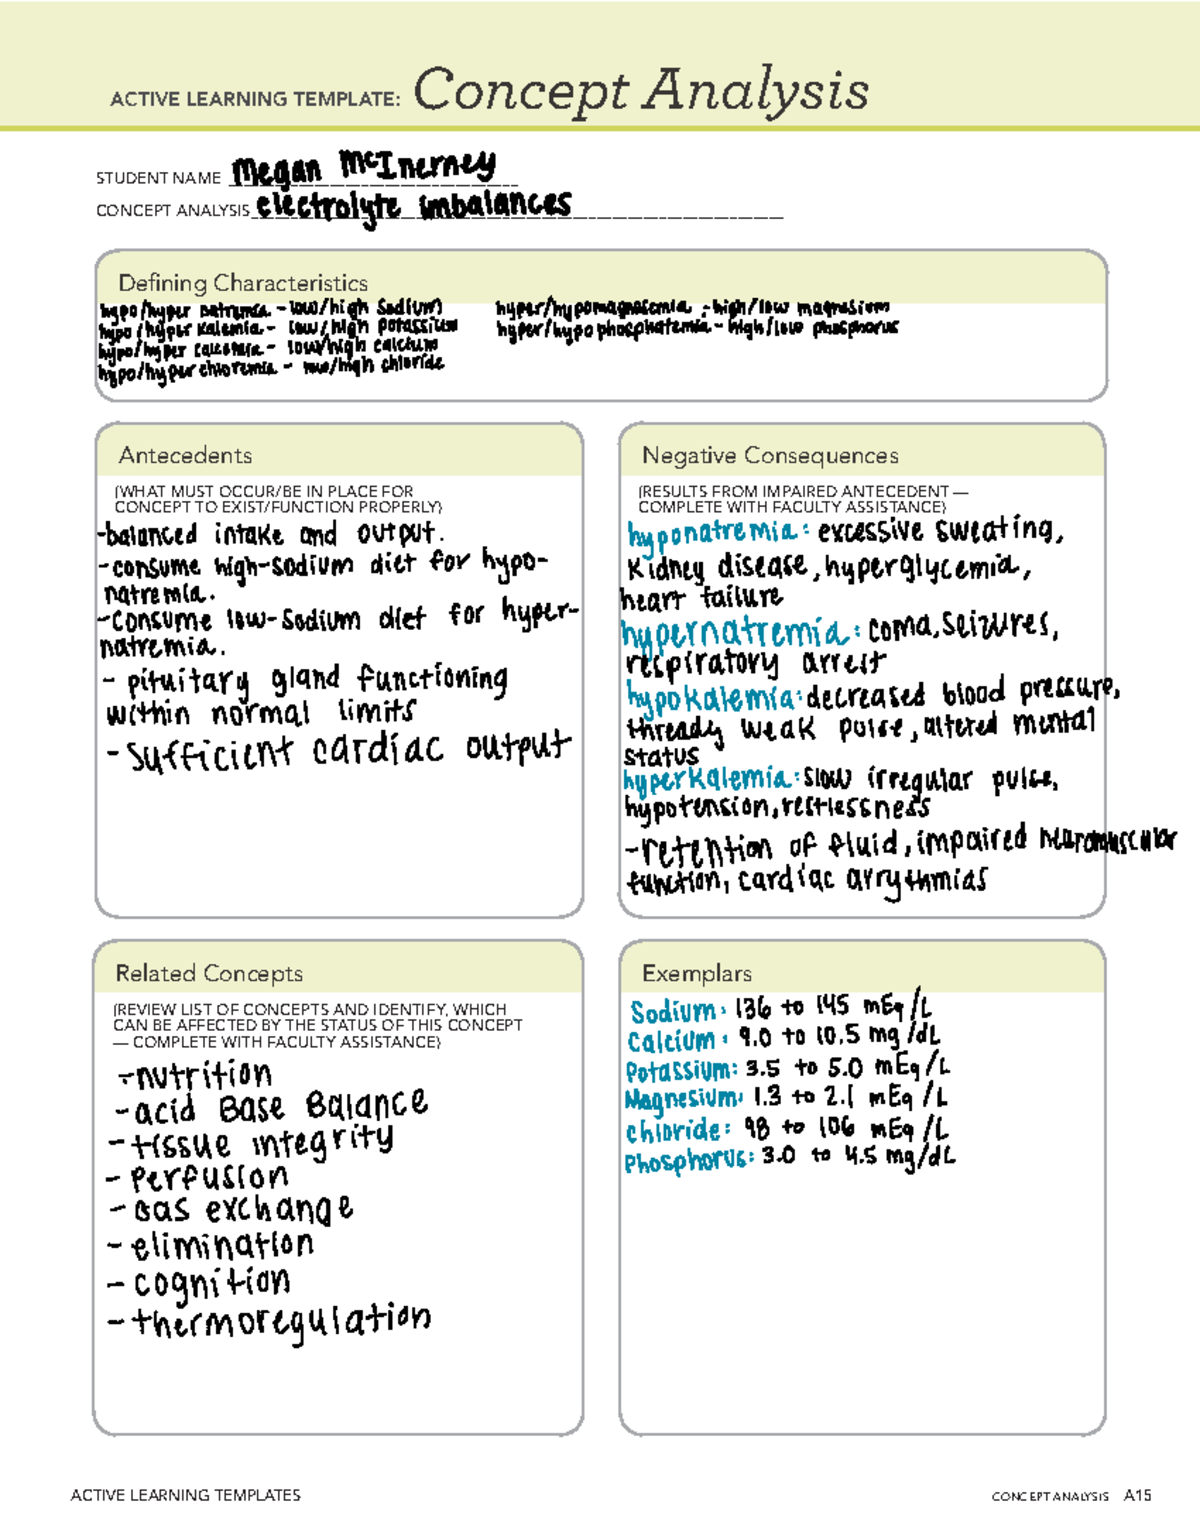 ACTIVE LEARNING TEMPLATE: Concept Analysis
STUDENT NAME Megan McInerney
CONCEPT ANALYSIS electrolyte imbalances
Defining Characteristics
hypo/hyper natremia - low/high Sodium
hypo/hyper Kalemia - low/high Potassium
hypo/hyper calcemia - low/high calcium
hypo/hyper chloremia - low/high chloride
hyper/hypomagnesemia - high/low magnesium
hyper/hypo phosphatemia - high/low phosphorus
Antecedents
(WHAT MUST OCCUR/BE IN PLACE FOR
CONCEPT TO EXIST/FUNCTION PROPERLY)
-balanced intake and output.
-consume high-sodium diet for hypo-
natremia.
-Consume low-Sodium diet for hyper-
natremia.
- pituitary gland functioning
within normal limits
- Sufficient cardiac output
Negative Consequences
(RESULTS FROM IMPAIRED ANTECEDENT —
COMPLETE WITH FACULTY ASSISTANCE)
hyponatremia: excessive sweating,
Kidney disease, hyperglycemia,
heart failure
hypernatremia: coma, seizures,
respiratory arrest
hypokalemia: decreased blood pressure,
thready weak pulse, altered mental
status
hyperkalemia: slow irregular pulse,
hypotension, restlessness
-retention of fluid, impaired neuromuscular
function, cardiac arrythmias
Related Concepts
(REVIEW LIST OF CONCEPTS AND IDENTIFY, WHICH
CAN BE AFFECTED BY THE STATUS OF THIS CONCEPT
— COMPLETE WITH FACULTY ASSISTANCE)
-nutrition
-acid Base Balance
-tissue integrity
- Perfusion
- Gas exchange
- elimination
- cognition
- thermoregulation
Exemplars
Sodium: 136 to 145 mEq/L
Calcium: 9.0 to 10.5 mg/dL
Potassium: 3.5 to 5.0 mEq/L
Magnesium: 1.3 to 2.1 mEq/L
chloride: 98 to 106 mEq/L
Phosphorus: 3.0 to 4.5 mg/dL
ACTIVE LEARNING TEMPLATES
CONCEPT ANALYSIS A15